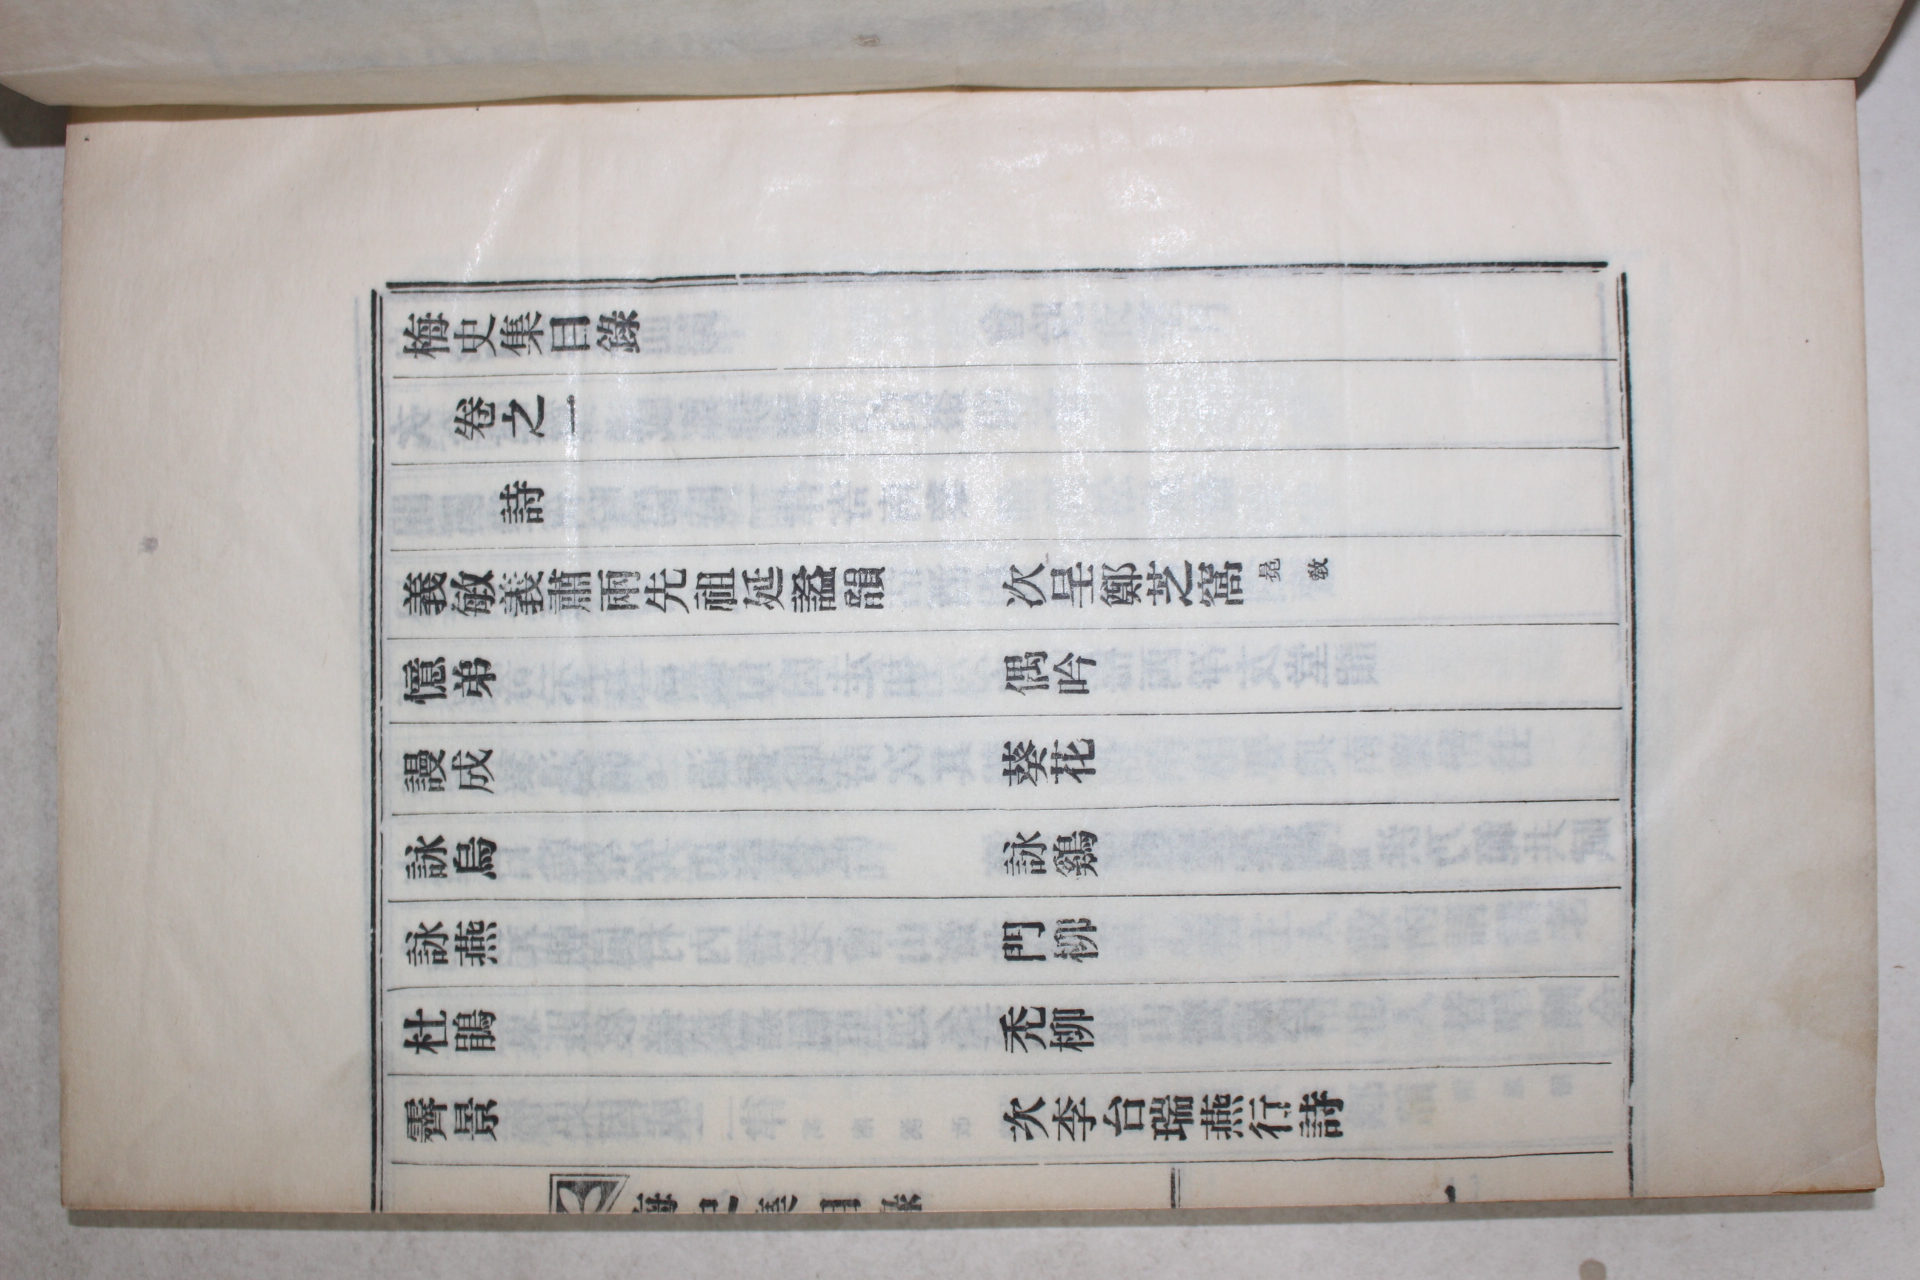 梅史集目錄
卷之一
詩
義敏義肅兩先祖延謚韻 次呈鄭芝窩 冕敎
憶弟 偶吟
謾成 葵花
詠烏 詠鷄
詠燕 門柳
杜鵑 禿柳
霽景 次李台瑞燕行詩
梅史集目錄 一